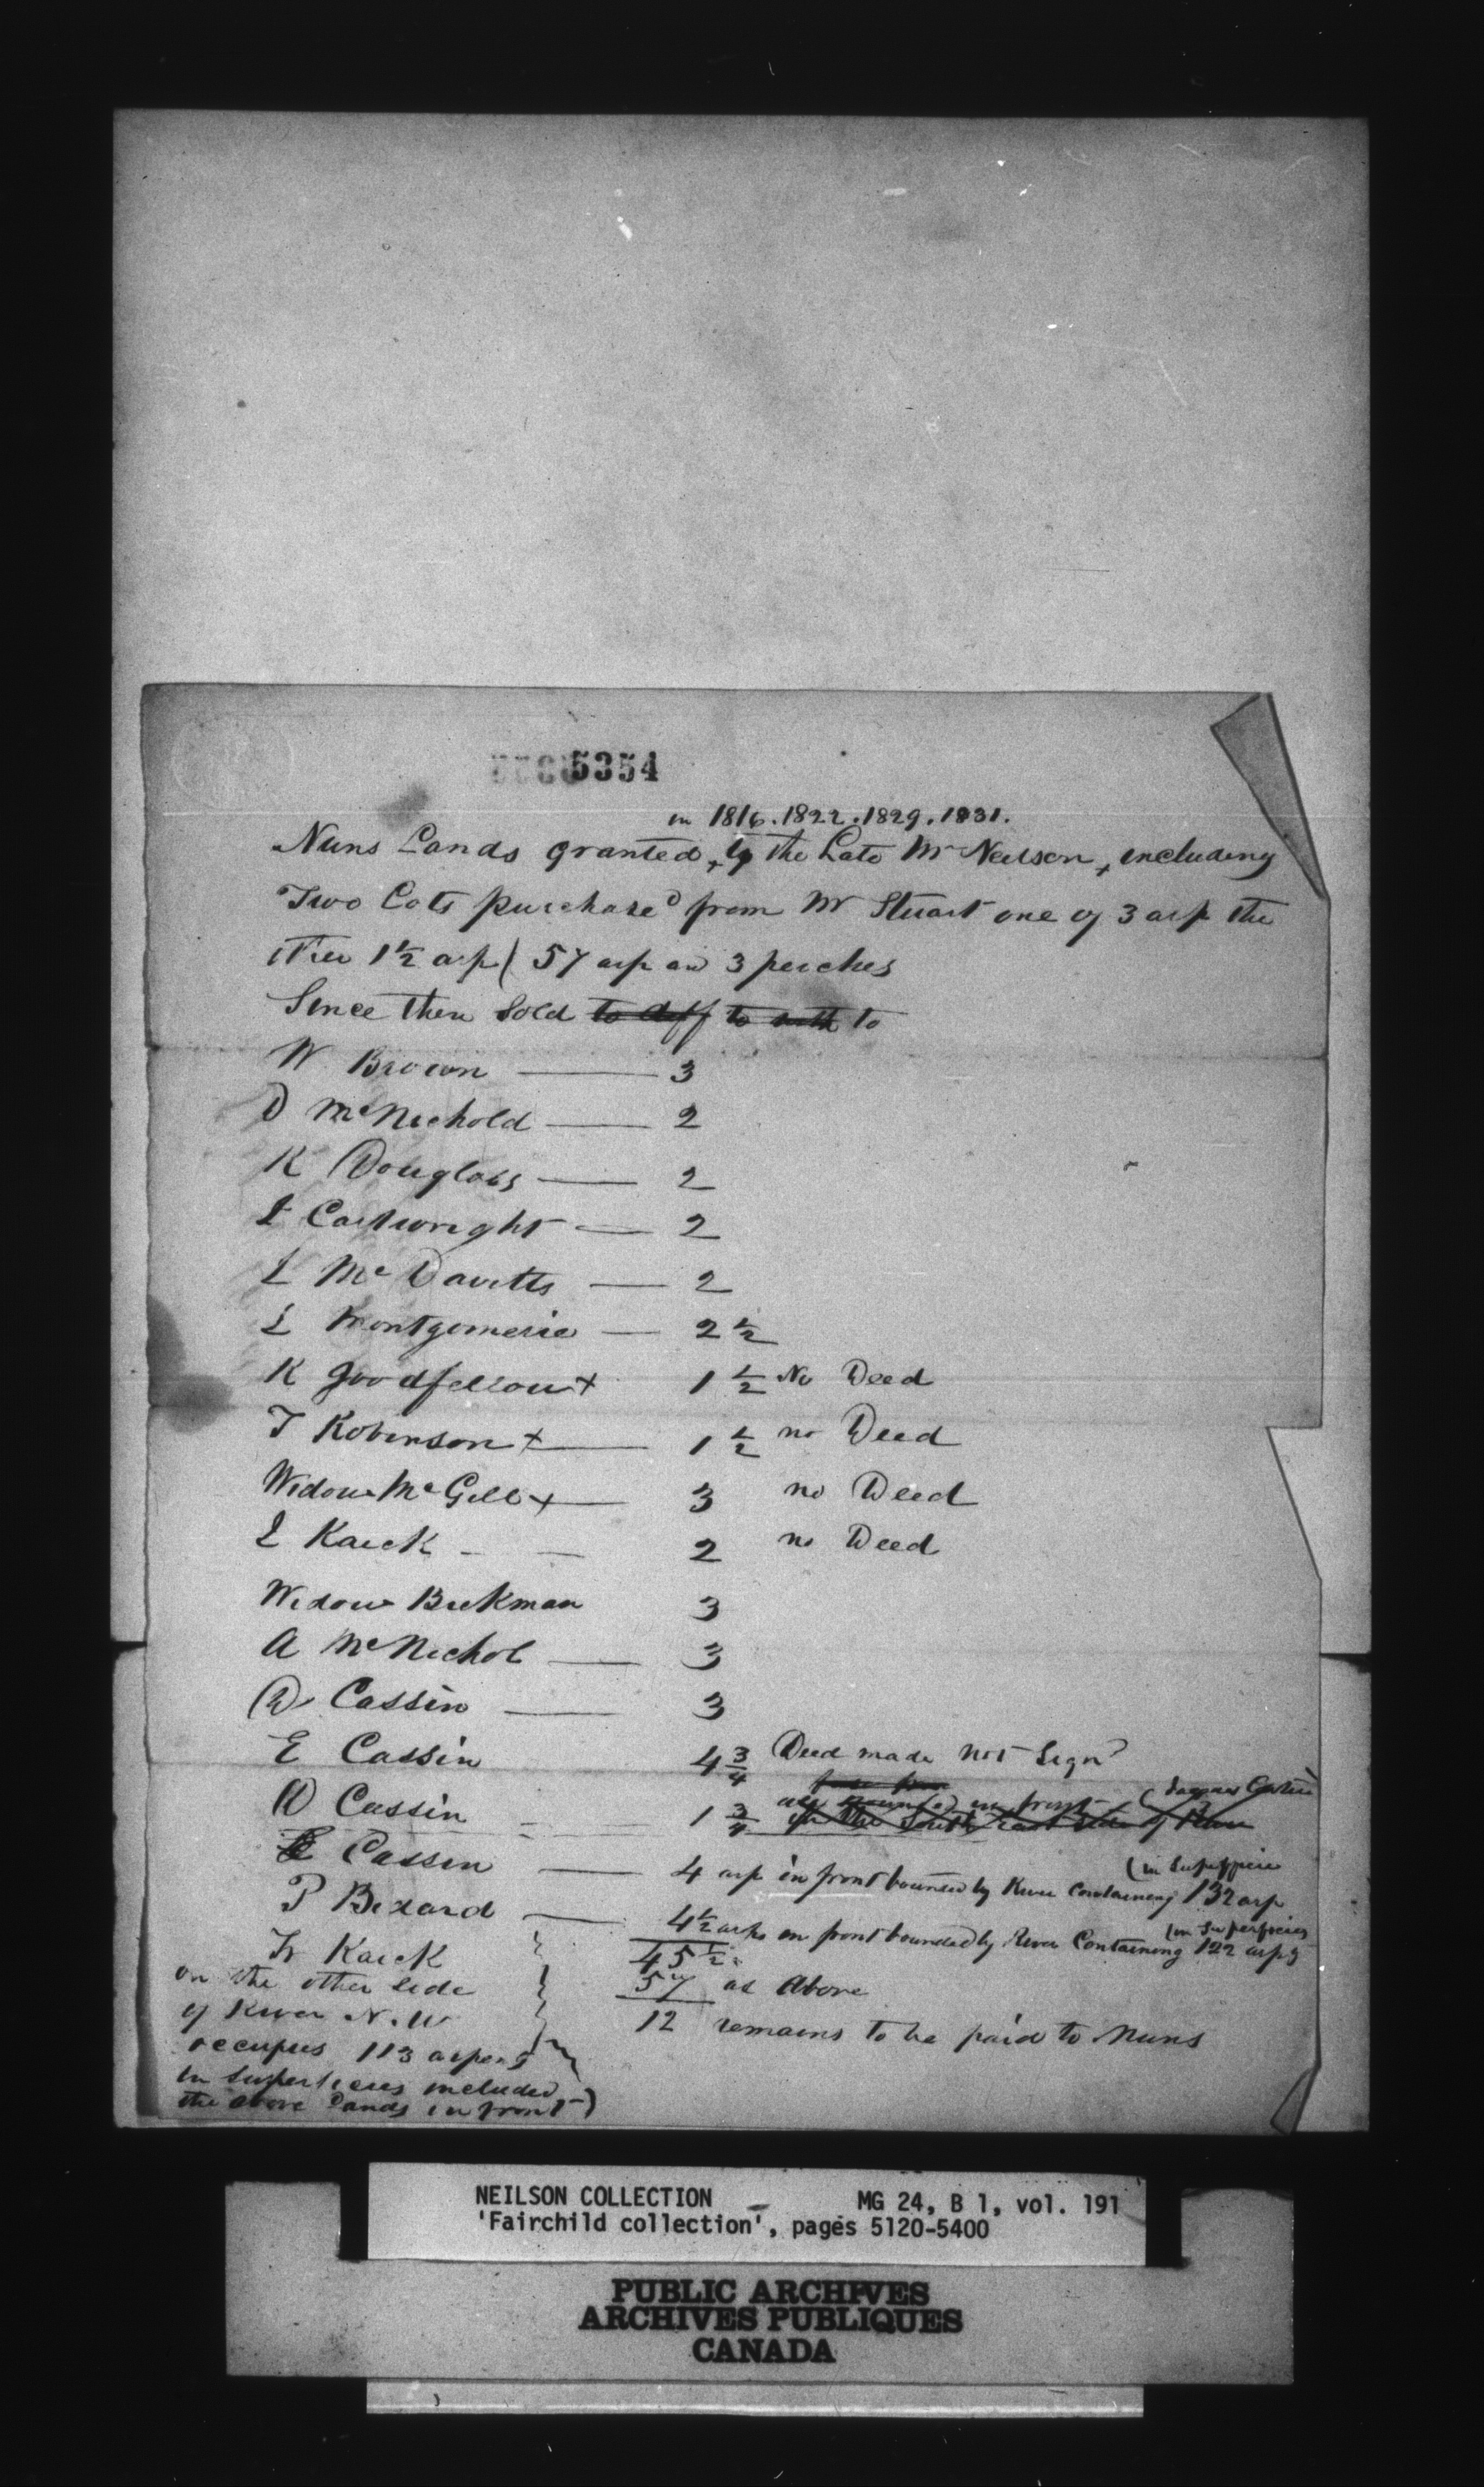 5354
in 1816. 1822. 1829. 1831.
Nuns Lands granted + to the Late Mr Neilson + including
Two Lots purchased from Mr Stuart one of 3 arp the
other 1½ arp ( 57 arp and 3 perches
Since then Sold to diff to to
W Brown — 3
D McNichold — 2
R Douglass — 2
J Cartwright — 2
J McDavitts — 2
J Montgomerie — 2½
R Goodfellow + 1½ No Deed
T Robinson + — 1½ no Deed
Widow McGill + — 3 no Deed
J Kaick - — 2 no Deed
Widow Brekman 3
A McNichol — 3
D Cassin — 3
E Cassin 4¾ Deed made not Signd
all bound(d) in front (Jacques Cartier
D Cassin 1¾ on the South east side of River
E Cassin — 4 arp in front bounded by River Containing 132 arp
(in Superficie
P Bezard — 4½ arps in front bounded by River Containing 122 arps
(in Superficies
45½
57 as Above
12 remains to be paid to Nuns
Fr Kaick
on the other side
of River N. W
occupies 113 arpents
in Superficies included
the above Lands in front)
NEILSON COLLECTION MG 24, B 1, vol. 191
'Fairchild collection', pages 5120-5400
PUBLIC ARCHIVES
ARCHIVES PUBLIQUES
CANADA